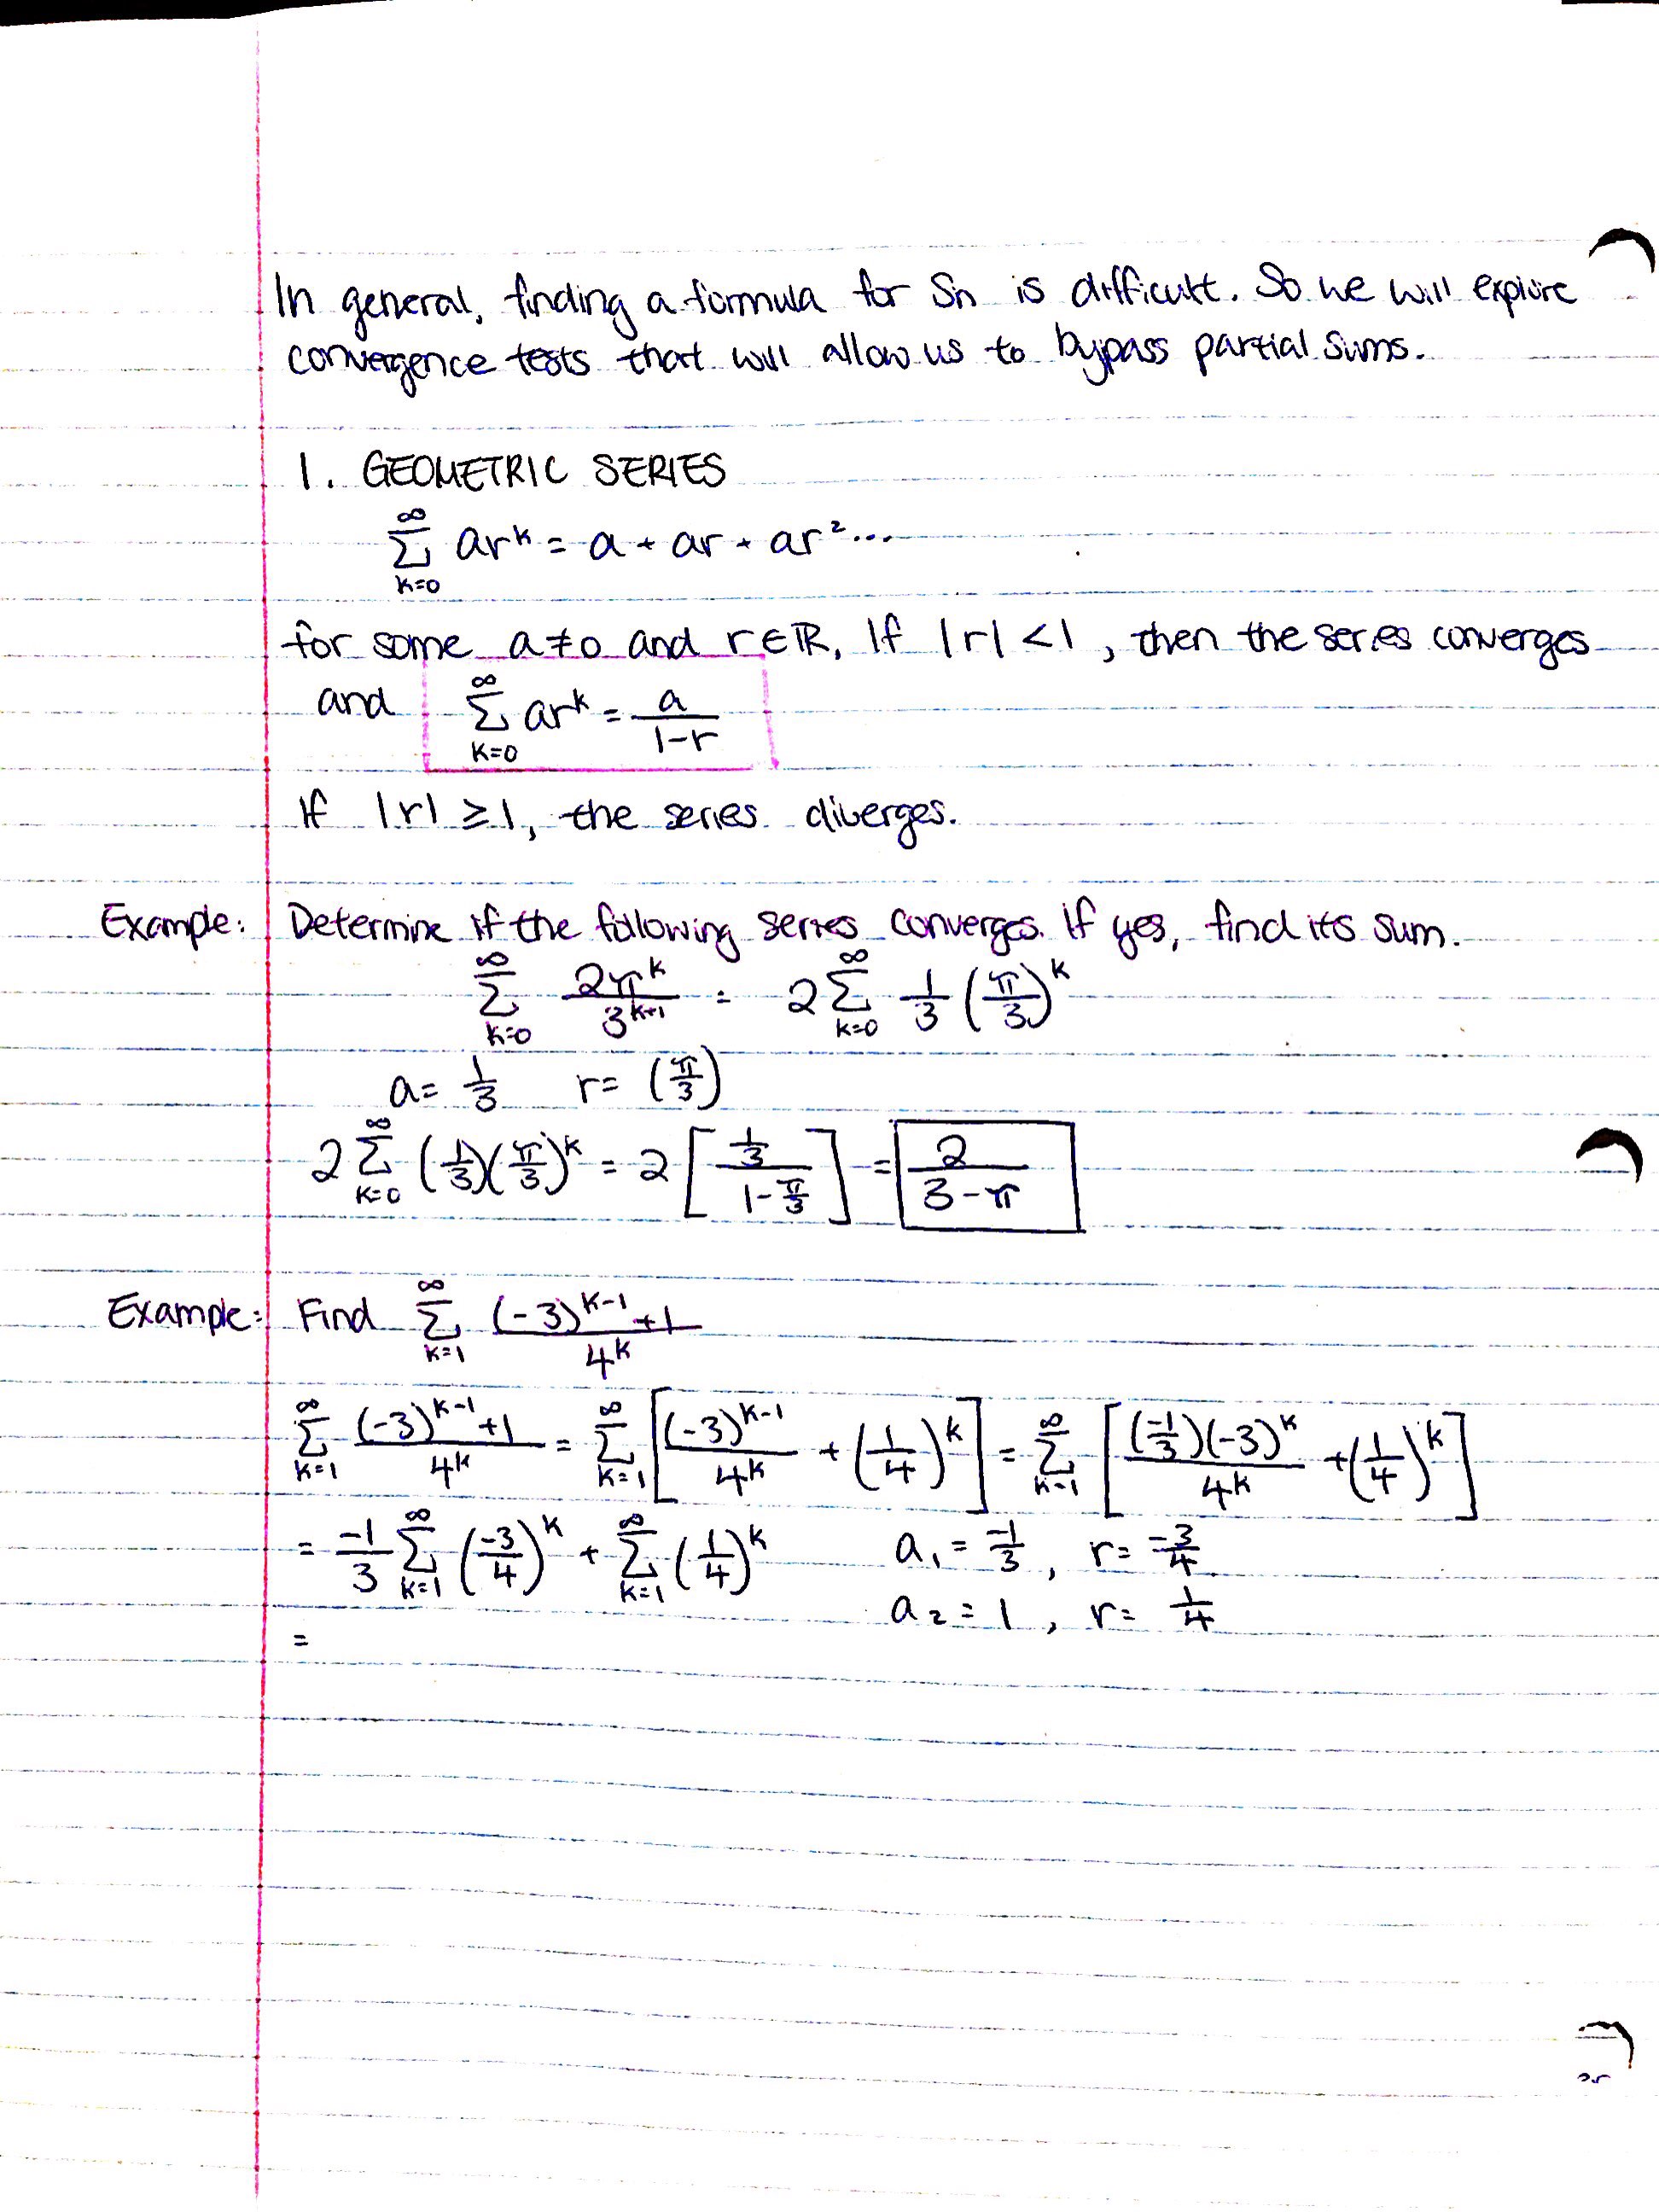 In general, finding a formula for Sn is difficult. So we will explore
convergence tests that will allow us to bypass partial sums.
1. GEOMETRIC SERIES
∞∑k=0 ar^k = a + ar + ar²...
for some a≠0 and r∈ℝ, If |r| <1, then the series converges
and ∞∑k=0 ar^k = a/(1-r)
If |r| ≥1, the series diverges.
Example: Determine if the following series converges. If yes, find its sum.
∞∑k=0 2π^k/3^(k+1) = 2 ∞∑k=0 1/3 (π/3)^k
a= 1/3 r= (π/3)
2 ∞∑k=0 (1/3)(π/3)^k = 2 [(1/3)/(1-π/3)] = 2/(3-π)
Example: Find ∞∑k=1 ((-3)^(k-1)+1)/4^k
∞∑k=1 ((-3)^(k-1)+1)/4^k = ∞∑k=1 [(-3)^(k-1)/4^k + (1/4)^k] = ∞∑k=1 [(-1/3)(-3)^k/4^k + (1/4)^k]
= -1/3 ∞∑k=1 (-3/4)^k + ∞∑k=1 (1/4)^k a₁ = -1/3, r= -3/4
a₂ = 1, r= 1/4
=